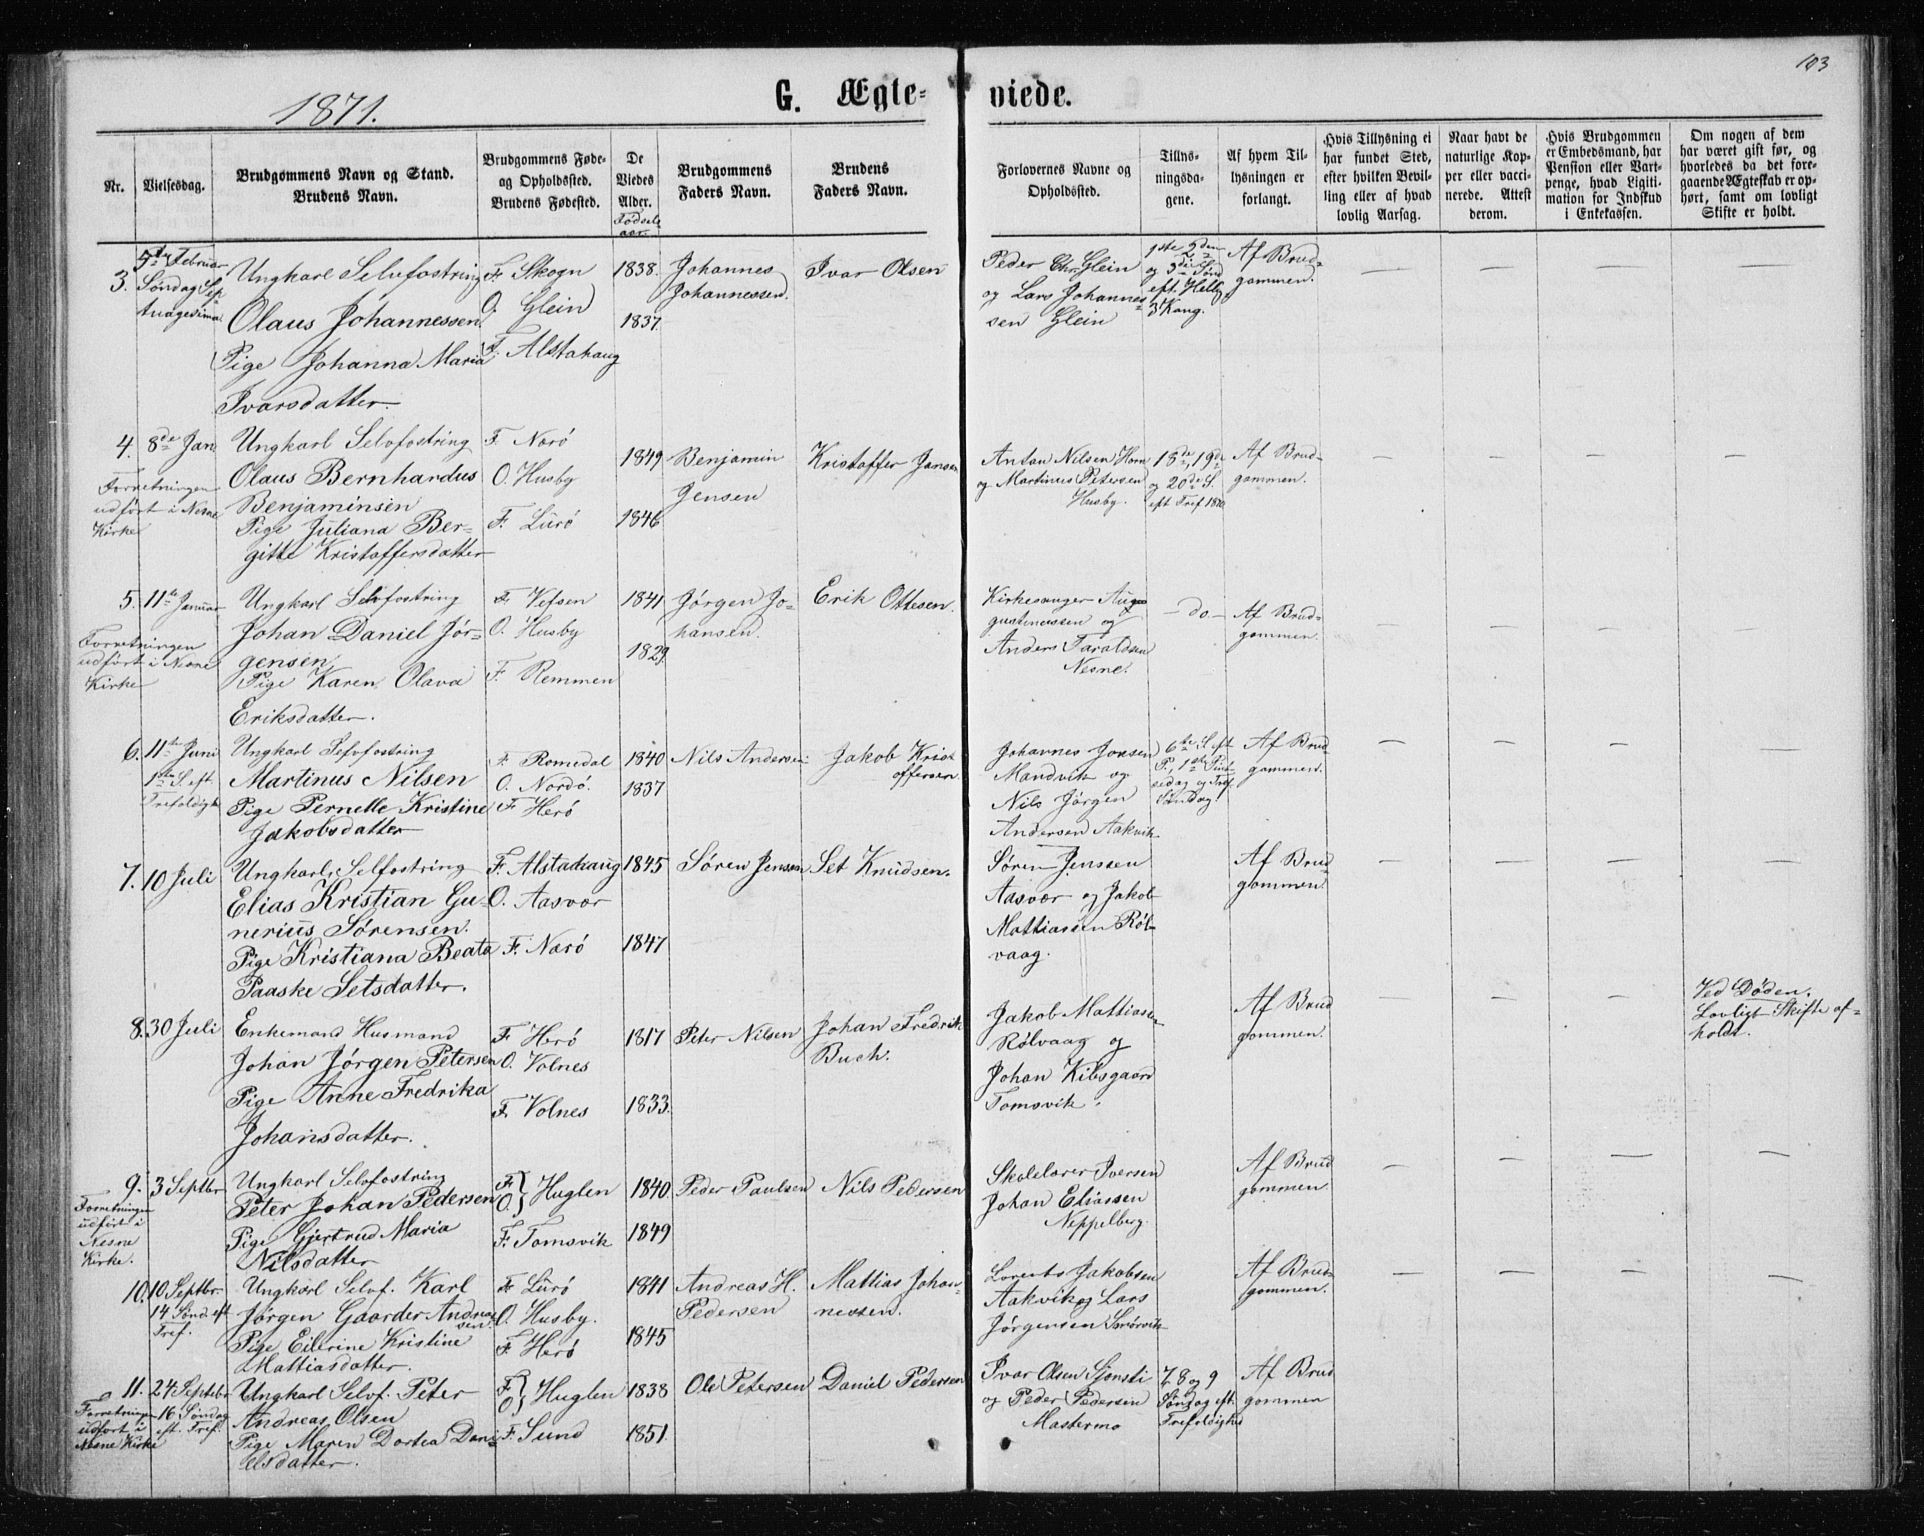 103
1871.
G. Ægte-
viede.
Nr.
Vielsesdag.
Brudgommens Navn og Stand.
Brudens Navn.
Brudgommens Føde-
og Opholdssted.
Brudens Fødested.
De
Viedes
Alder.
Fødsels
aar.
Brudgommens
Faders Navn.
Brudens
Faders Navn.
Forlovernes Navne og
Opholdssted.
Tillys-
ningsda-
gene.
Af hvem Til-
lysningen er
forlangt.
Hvis Tillysning ei
har fundet Sted,
efter hvilken Bevil-
ling eller af hvad
lovlig Aarsag.
Naar havt de
naturlige Kop-
per eller vacci-
nerede. Attest
derom.
Hvis Brudgommen
er Embedsmand, har
Pension eller Vart-
penge, hvad Ligiti-
mation for Indskud
i Enkekassen.
Om nogen af dem
har været gift før, og
hvorledes da det fore-
gaaende Ægteskab er op-
hørt, samt om lovligt
Skifte er holdt.
3.
5te Februar
Søndag Sep
tuagesima
Ungkarl Selvfostring
Olaus Johannessen.
Pige Johanna Maria
Ivarsdatter.
F. Skogn
O. Glein
F. Alstahaug
1838.
1837.
Johannes
Johannessen.
Ivar Olsen
Peder Chr. Glein
og Lars Johannes-
sen Glein
1ste 2den
og 3die Sønd
eft. Hellig
3 Kong.
Af Brud-
gommen.
— — — —
4.
8de Jan.
Forretningen
udført i Nesne
Kirke
Ungkarl Selvfostring
Olaus Bernhardus
Benjaminsen
Pige Juliana Ber-
gitte Kristoffersdatter
F. Narö
O. Husby
F. Lurö
1849
1846
Benjamin
Jensen
Kristoffer Jansen
Antan Nilsen Horn
og Martinus Petersen
Husby.
18de, 19de
og 20de S.
eft Tref 1870
Af Brud-
gommen.
— — — —
5.
11te Januar
Forretningen
udført i Nesne
Kirke
Ungkarl Selvfostring
Johan Daniel Jör-
gensen
Pige Karen Olava
Eriksdatter.
F. Vefsen
O. Husby
F. Remmen
1841
1829
Jørgen Jo-
hansen.
Erik Ottesen.
Kirkesanger Au
gustinussen og
Anders Taraldsen
Nesne.
- do -
Af Brud-
gommen.
— — — —
6.
11te Juni
1ste S. eft
Trefoldigh
Ungkarl Selvfostring
Martinus Nilsen
Pige Pernelle Kristine
Jakobsdatter
F. Romedal
O. Nordö.
F. Herö
1840
1837
Nils Andersen
Jakob Krist
offersen
Johannes Jonsen
Mandvik og
Nils Jörgen
Andersen Aakvik
6te S. eft
P., 1ste Pint
sedag og Tref
Søndag
Af Brud
gommen.
— — — —
7.
10 Juli
Ungkarl Selfostring
Elias Kristian Gu-
nerius Sørensen.
Pige Kristiana Beata
Paaske Setsdatter.
F. Alstadhaug
O. Aasvær
F. Narö
1845
1847
Søren Jensen
Set Knudsen.
Søren Jenssen
Aasvær og Jakob
Mattiassen Röl-
vaag.
Af Brud
gommen.
— — — —
8.
30 Juli
Enkemand Husmand
Johan Jörgen Petersen
Pige Anne Fredrika
Johansdatter.
F. Herö
O. Volnes
F. Volnes
1817
1833.
Peter Nilsen
Johan Fredrik
Buch.
Jakob Mattiasen
Rölvaag og
Johan Kibsgaard
Tomsvik.
Af Brud
gommen.
— — —
Ved Døden.
Lovligt Skifte af-
holdt.
9.
3 Septbr
Forretningen
udført i
Nesne
Kirke.
Ungkarl Selvfostring
Peter Johan Pedersen
Pige Gjertrud Maria
Nilsdatter
F.
O. } Huglen
F. Tomsvik
1840.
1849
Peder Paulsen
Nils Pedersen
Skolelærer Iversen
Johan Eliassen
Neppelberg.
Af Brud
gommen.
— — — —
10.
10 Septbr
14 Sønd. eft
Tref.
Ungkarl Selvf. Karl
Jörgen Gaarder Andrea
sen.
Pige Eilerine Kristine
Mattiasdatter.
F. Lurö
O. Husby.
F. Herö
1841
1845
Andreas H.
Pedersen
Mattias Johan-
nessen.
Lorents Jakobsen
Aakvik og Lars
Jörgensen
Af Brud-
gommen.
— — — —
11.
24 Septebr
Forretningen
udført i
Nesne Kirke
16 Søndag
eft. Tref.
Ungkarl Selvf. Peter
Andreas Olsen
Pige Maren Dortea Dani-
elsdatter.
F.
O. } Huglen
F. Sund
1838
1851.
Ole Petersen
Daniel Pedersen
Ivar Olsen Sjonsti
og Peder Pedersen
Mastermo
7, 8 og 9
Søndag eft.
Trefoldighed
Af Brud
gommen